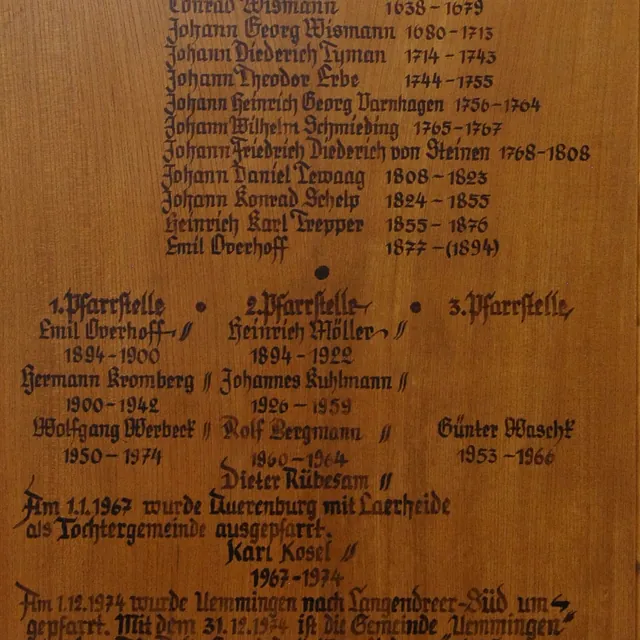 Conrad Wismann 1638-1679
Johann Georg Wismann 1680-1713
Johann Diederich Tyman 1714-1743
Johann Theodor Erbe 1744-1755
Johann Heinrich Georg Varnhagen 1756-1764
Johann Wilhelm Schmieding 1765-1767
Johann Friedrich Diederich von Steinen 1768-1808
Johann Daniel Tewaag 1808-1823
Johann Konrad Schelp 1824-1855
Heinrich Karl Trepper 1855-1876
Emil Overhoff 1877-(1894)
1. Pfarrstelle • 2. Pfarrstelle • 3. Pfarrstelle
Emil Overhoff // Heinrich Möller //
1894-1900 1894-1922
Hermann Kromberg // Johannes Kuhlmann //
1900-1942 1926-1959
Wolfgang Werbeck // Rolf Bergmann // Günter Waschk
1950-1974 1960-1964 1953-1966
Dieter Rübesam //
Am 1.1.1967 wurde Querenburg mit Laerheide
als Tochtergemeinde ausgepfarrt.
Karl Kosel //
1967-1974
Am 1.12.1974 wurde Uemmingen nach Langendreer-Süd um-
gepfarrt. Mit dem 31.12.1974 ist die Gemeinde "Uemmingen"